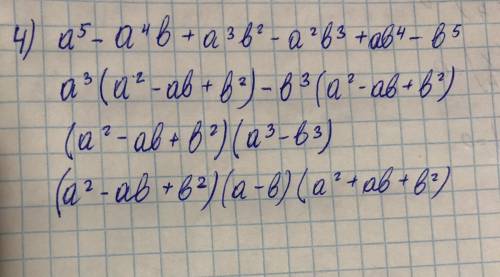 4) a⁵ - a⁴b + a³b² - a²b³ + ab⁴ - b⁵
a³(a² - ab + b²) - b³(a² - ab + b²)
(a² - ab + b²)(a³ - b³)
(a² - ab + b²)(a - b)(a² + ab + b²)